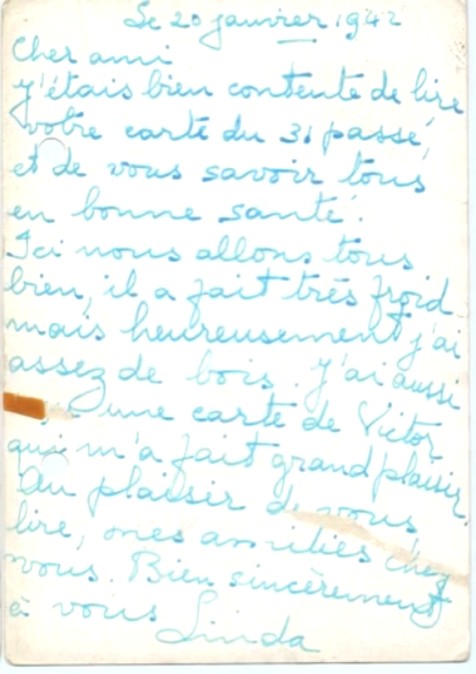 Le 20 janvier 1942
Cher ami
j'étais bien contente de lire
votre carte du 31 passé,
et de vous savoir tous
en bonne santé.
Ici nous allons tous
bien, il a fait très froid
mais heureusement j'ai
assez de bois. J'ai aussi
une carte de Victor
qui m'a fait grand plaisir.
Au plaisir de vous
lire, mes amitiés chez
vous. Bien sincèrement
à vous Linda